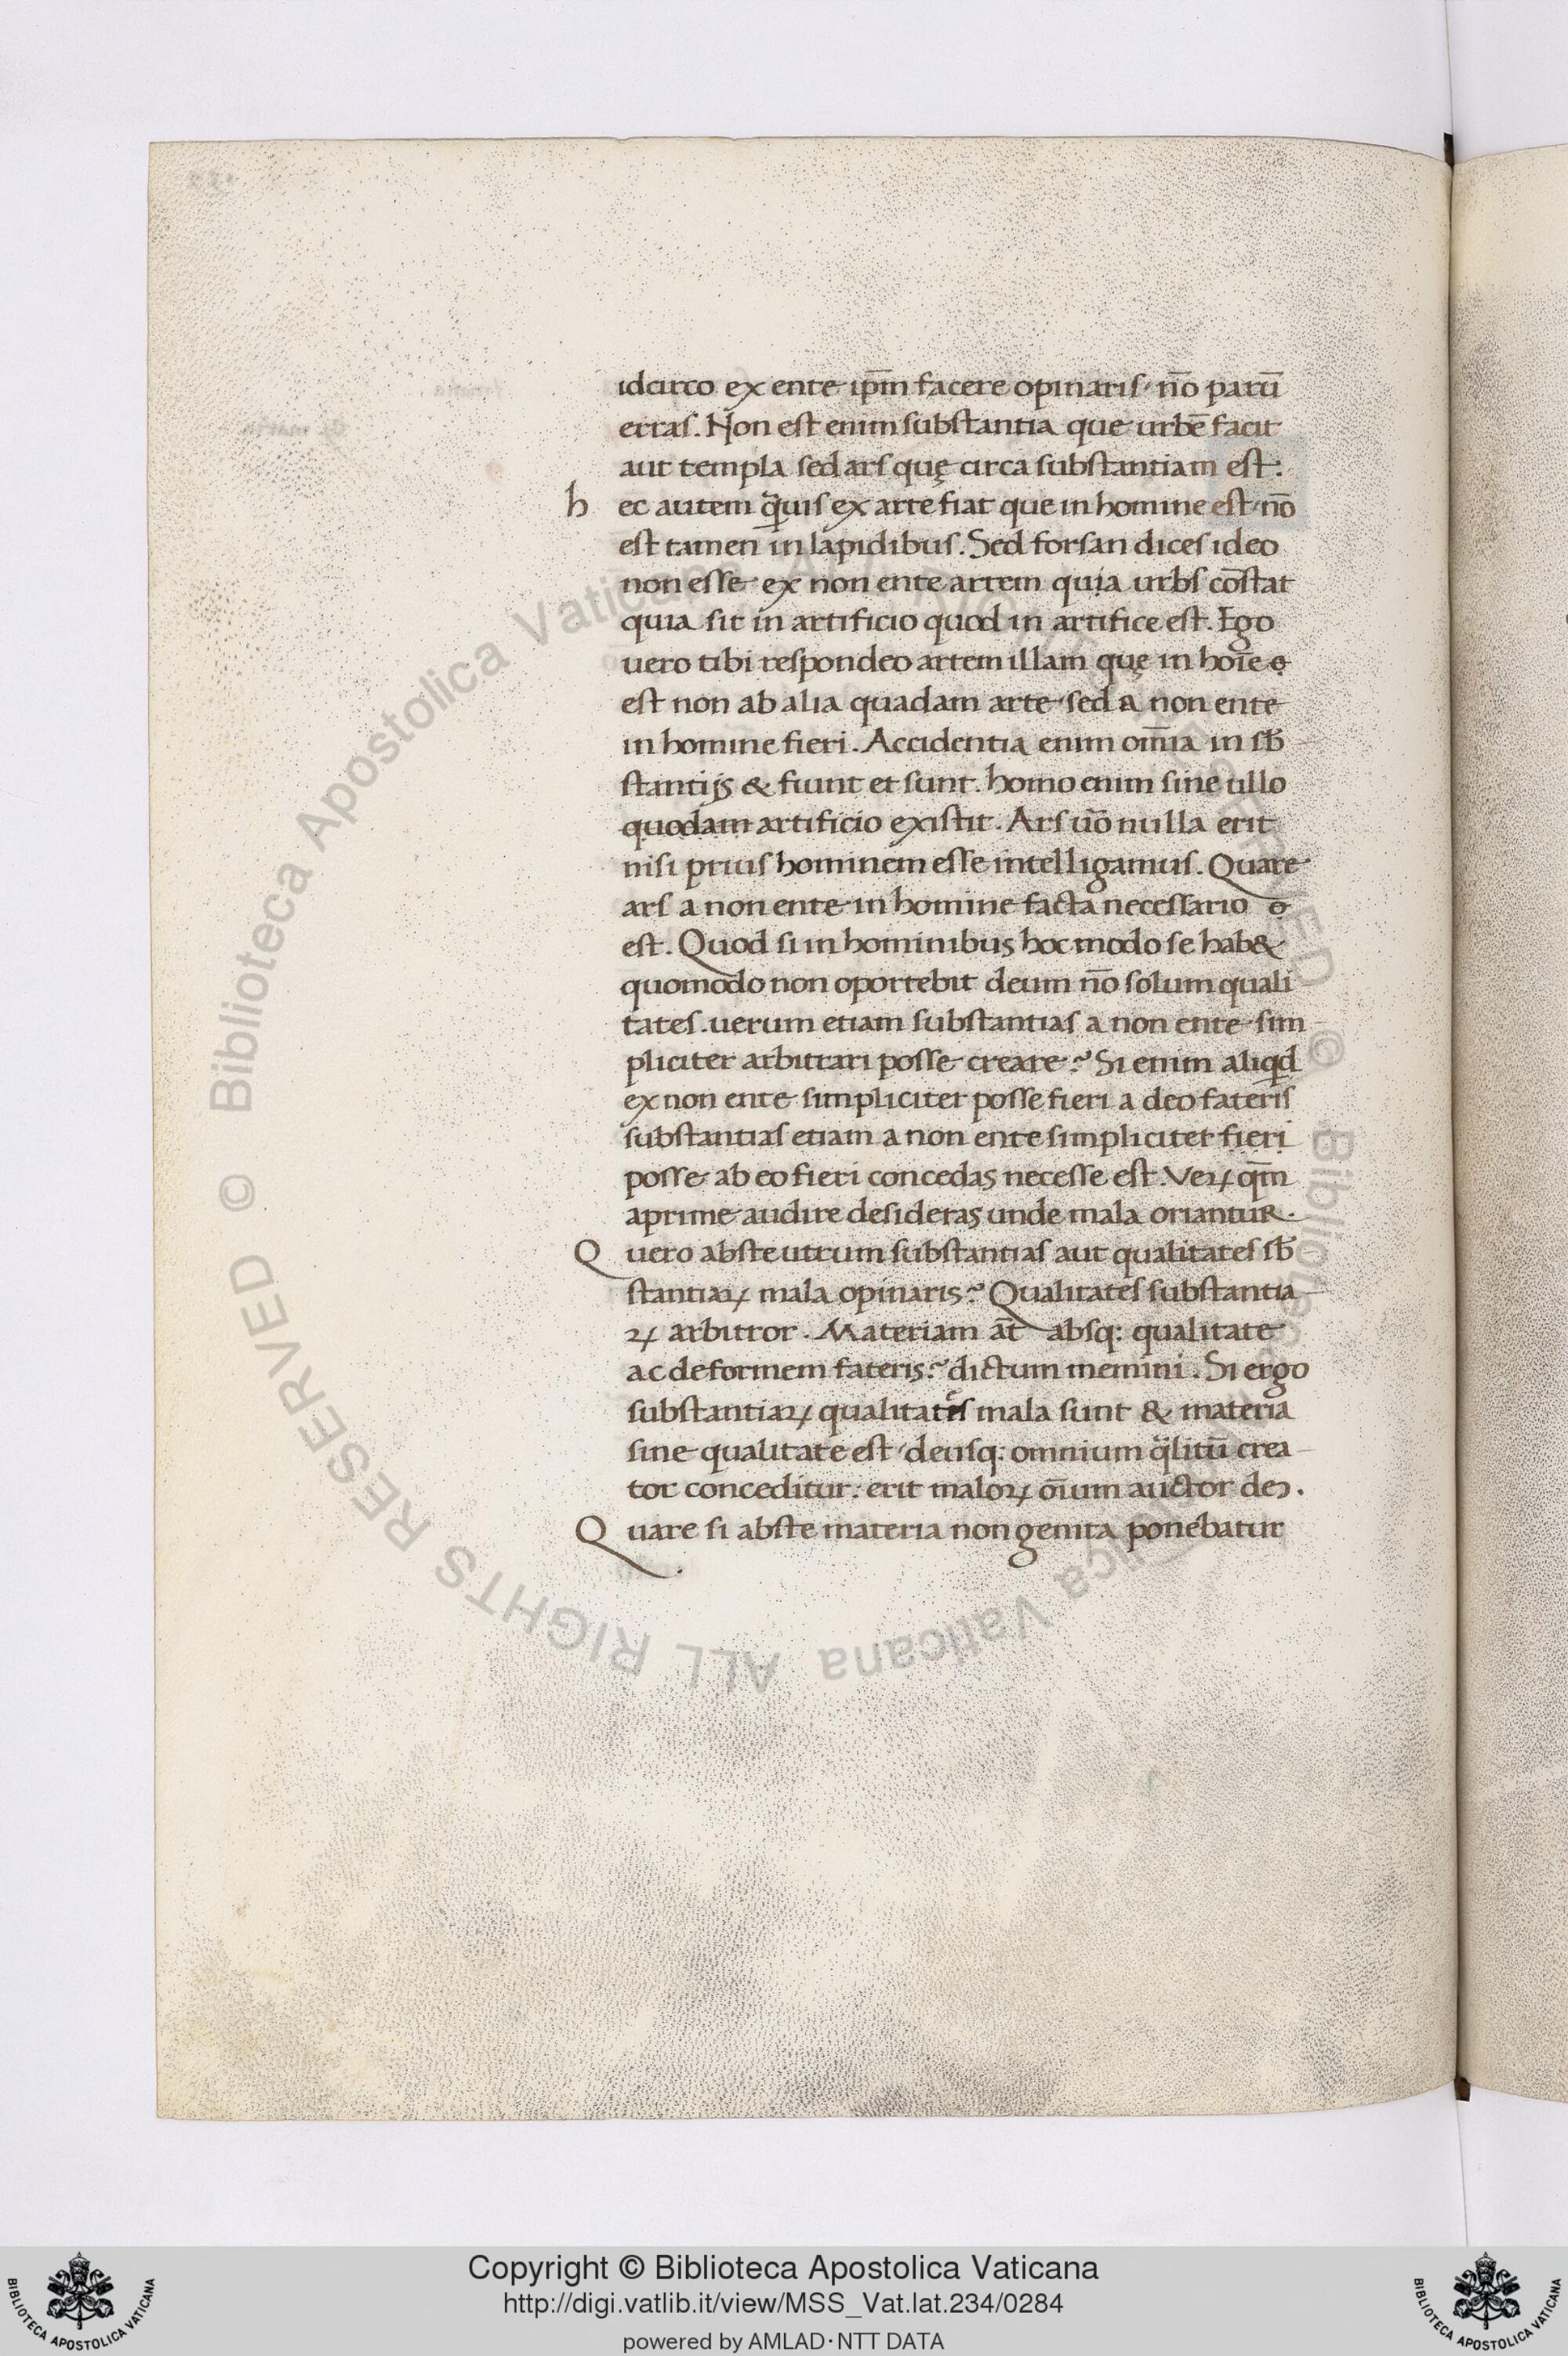 idcirco ex ente ip̄m facere opinaris · nō parū
erras. Non est enim substantia que urbē facit
aut templa sed ars quę circa substantiam est:
h ec autem q̃uis ex arte fiat que in homine est · nō
est tamen in lapidibus. Sed forsan dices ideo
non esse ex non ente artem quia urbs cōstat
quia sit in artificio quod in artifice est. Ego
uero tibi respondeo artem illam quę in hoīe
est non ab alia quadam arte · sed a non ente
in homine fieri. Accidentia enim om̄ia in sb̄
stantijs & fiunt et sunt. homo enim sine ullo
quodam artificio existit. Ars ūo nulla erit
nisi prius hominem esse intelligamus. Quare
ars a non ente in homine facta necessario
est. Quod si in hominibus hoc modo se hab&
quomodo non oportebit deum nō solum quali
tates. uerum etiam substantias a non ente sim
pliciter arbitrari posse creare? Si enim aliqd
ex non ente simpliciter posse fieri a deo fateris
substantias etiam a non ente simpliciter fieri
posse ab eo fieri concedas necesse est. Veꝝ qm̄
aprime audire desideras unde mala oriantur.
Q uero abste utrum substantias aut qualitates sb̄
stantiaꝝ mala opinaris? Qualitates substantia
ꝝ arbitror. Materiam āt absq: qualitate
ac deformem fateris? dictum memini. Si ergo
substantiaꝝ qualitates mala sunt & materia
sine qualitate est / deusq: omnium q̃litū crea
tor conceditur: erit maloꝝ oīum auctor deꝰ.
Q uare si abste materia non genita ponebatur
Copyright © Biblioteca Apostolica Vaticana
http://digi.vatlib.it/view/MSS_Vat.lat.234/0284
powered by AMLAD·NTT DATA
BIBLIOTECA APOSTOLICA VATICANA
BIBLIOTECA APOSTOLICA VATICANA
© Biblioteca Apostolica Vaticana ALL RIGHTS RESERVED
© Biblioteca Apostolica Vaticana ALL RIGHTS RESERVED